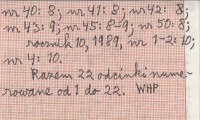 nr 40: 8; nr 41: 8; nr 42: 8;
nr 43: 9; nr 45: 8-9; nr 50: 8;
rocznik 10, 1989, nr 1-2: 10;
nr 4: 10.
Razem 22 odcinki nume-
rowane od 1 do 22. WHP